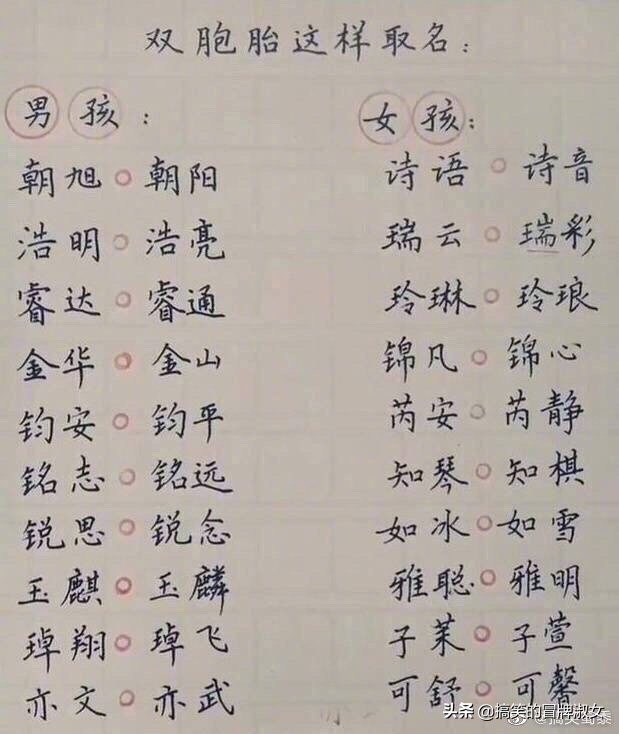 双胞胎这样取名：
男孩：
朝旭○朝阳
浩明○浩亮
睿达○睿通
金华○金山
钧安○钧平
铭志○铭远
锐思○锐念
玉麒○玉麟
琸翔○琸飞
亦文○亦武
女孩：
诗语○诗音
瑞云○瑞彩
玲琳○玲琅
锦凡○锦心
芮安○芮静
知琴○知棋
如冰○如雪
雅聪○雅明
子茉○子萱
可舒○可馨
头条 @搞笑的冒牌淑女